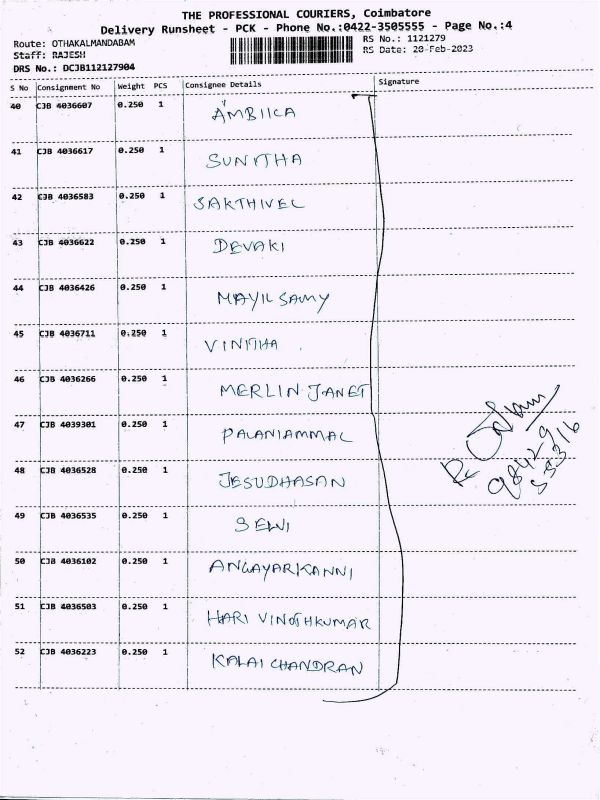 THE PROFESSIONAL COURIERS, Coimbatore
Delivery Runsheet - PCK - Phone No.:0422-3505555 - Page No.:4
Route: OTHAKALMANDABAM
RS No.: 1121279
Staff: RAJESH
RS Date: 20-Feb-2023
DRS No.: DCJB112127904
S No Consignment No Weight PCS Consignee Details Signature
40 CJB 4036607 0.250 1 AMBIICA
41 CJB 4036617 0.250 1 SUNITHA
42 CJB 4036583 0.250 1 SAKTHIVEL
43 CJB 4036622 0.250 1 DEVAKI
44 CJB 4036426 0.250 1 MAYILSAMY
45 CJB 4036711 0.250 1 VINITHA
46 CJB 4036266 0.250 1 MERLIN JANET
47 CJB 4039301 0.250 1 PALANIAMMAL
48 CJB 4036528 0.250 1 JESUDHASAN
49 CJB 4036535 0.250 1 SELVI
50 CJB 4036102 0.250 1 ANGAYARKANNI
51 CJB 4036503 0.250 1 HARI VINOTHKUMAR
52 CJB 4036223 0.250 1 KALAI CHANDRAN
98429
55316